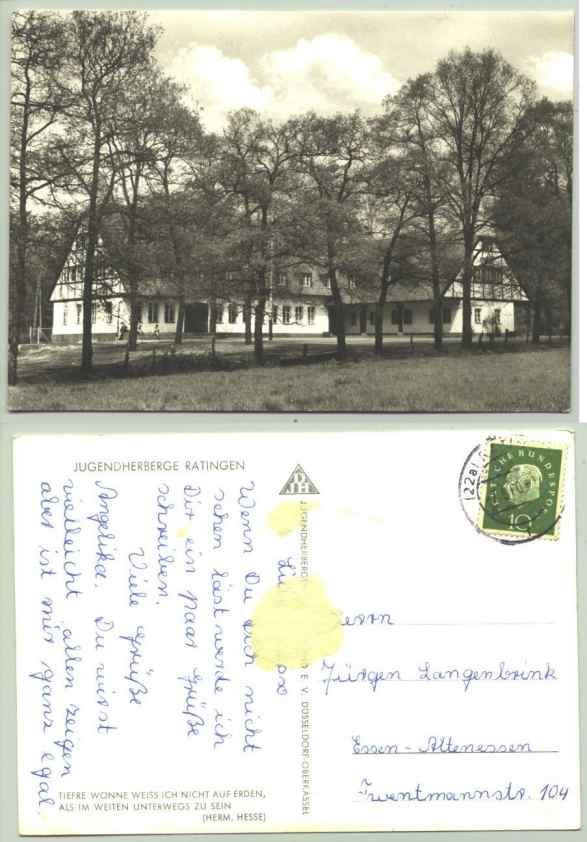 JUGENDHERBERGE RATINGEN
DJH
Wenn Du Dich nicht
sehen läst werde ich
Dir ein paar Grüße
schreiben.
Viele Grüße
Angelika. Du wirst
vielleicht allen zeigen
aber ist mir ganz egal.
TIEFRE WONNE WEISS ICH NICHT AUF ERDEN,
ALS IM WEITEN UNTERWEGS ZU SEIN
(HERM. HESSE)
JUGENDHERBERGS E. V. DÜSSELDORF-OBERKASSEL
(22a)
DEUTSCHE BUNDESPOST
10
Jürgen Langenbrink
Essen-Altenessen
Twentmannstr. 104